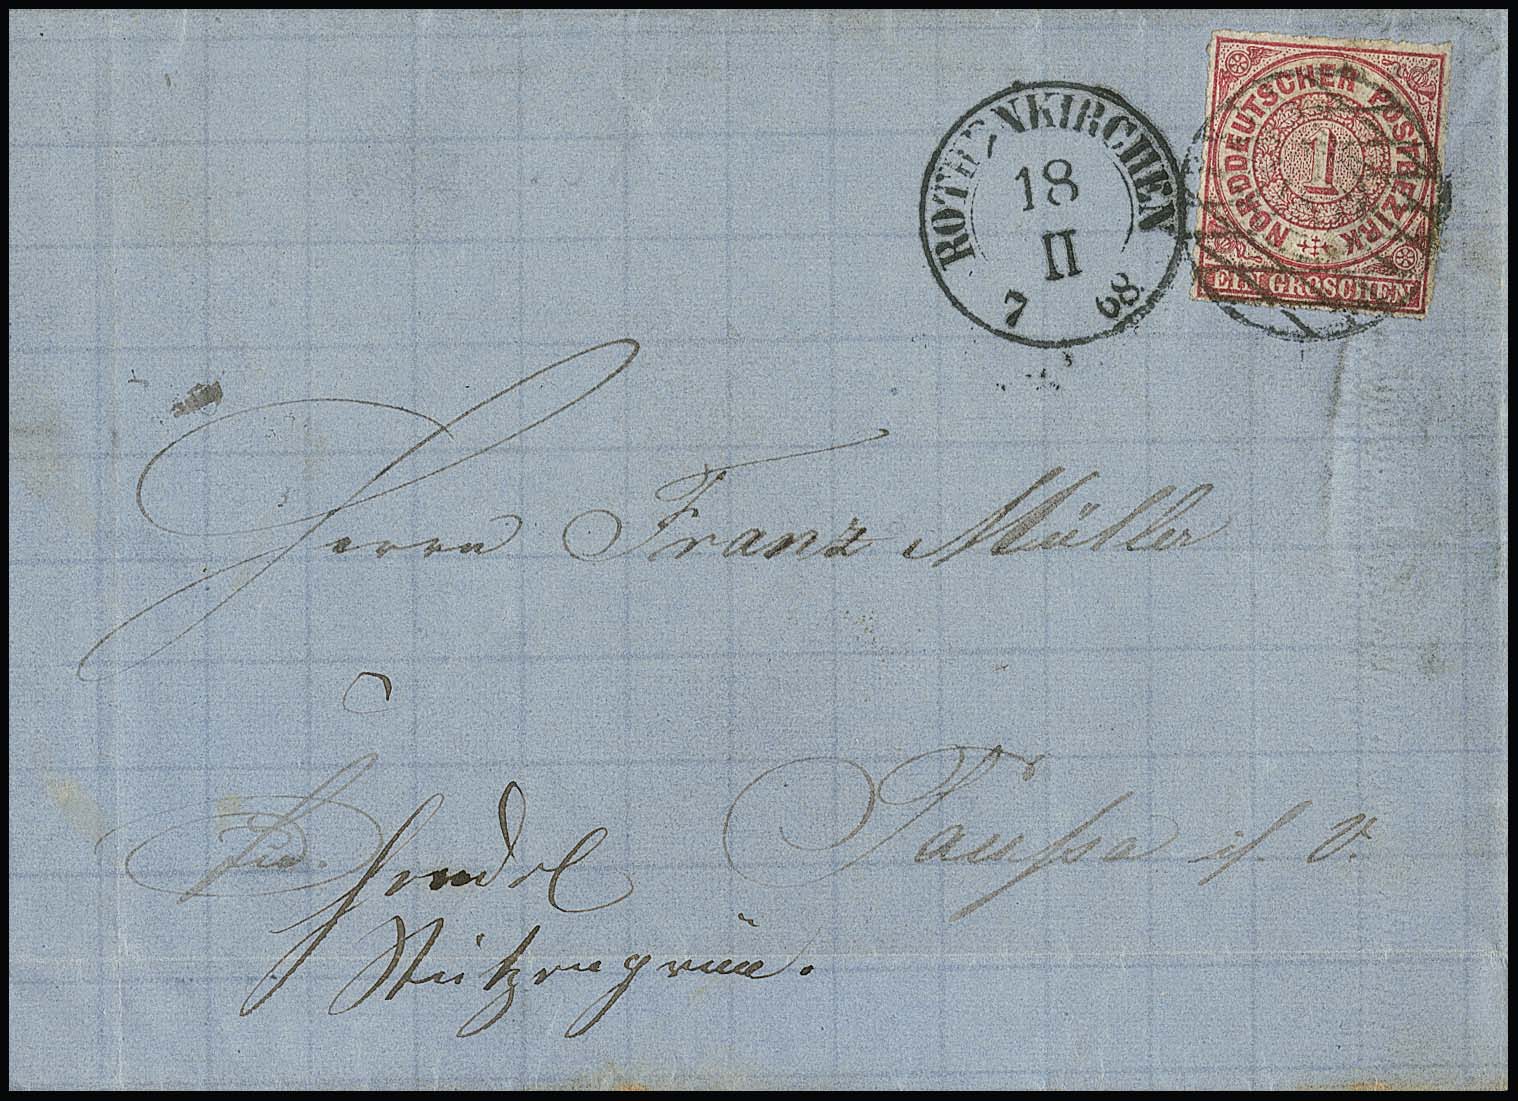 ROTHENKIRCHEN
18
II
7 68.
NORDDEUTSCHER POSTBEZIRK
1
EIN GROSCHEN
Herrn Franz Müller
Taussa i/ V.
Hendel
Stützengrün.